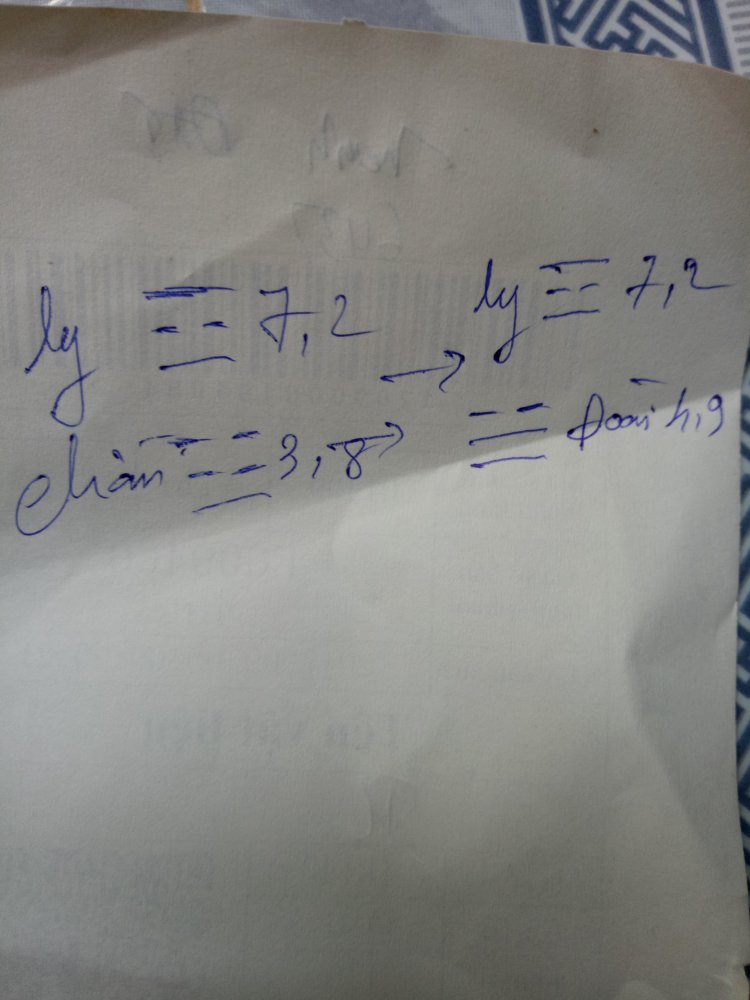 ly ☲ 7,2 → ly ☲ 7,2
chấn ☳ 3,8 → ☱ Đoài 4,9